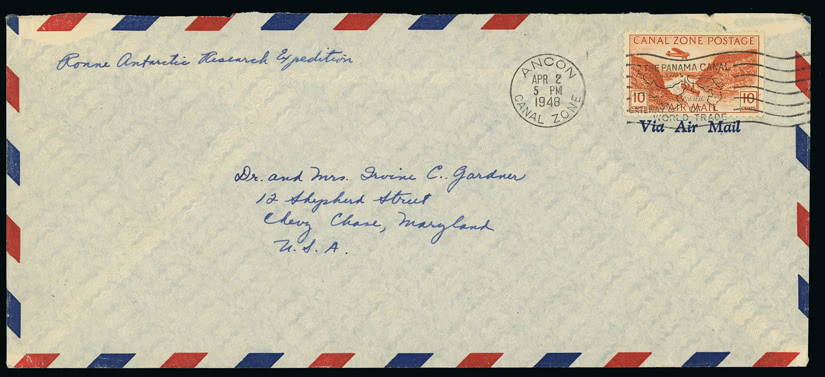 Ronne Antarctic Research Expedition
ANCON
APR 2
5 PM
1948
CANAL ZONE
CANAL ZONE POSTAGE
THE PANAMA CANAL
10 AIR MAIL 10
WORLD TRADE
Via Air Mail
Dr. and Mrs. Irvine C. Gardner
12 Shepherd Street
Chevy Chase, Maryland
U.S.A.